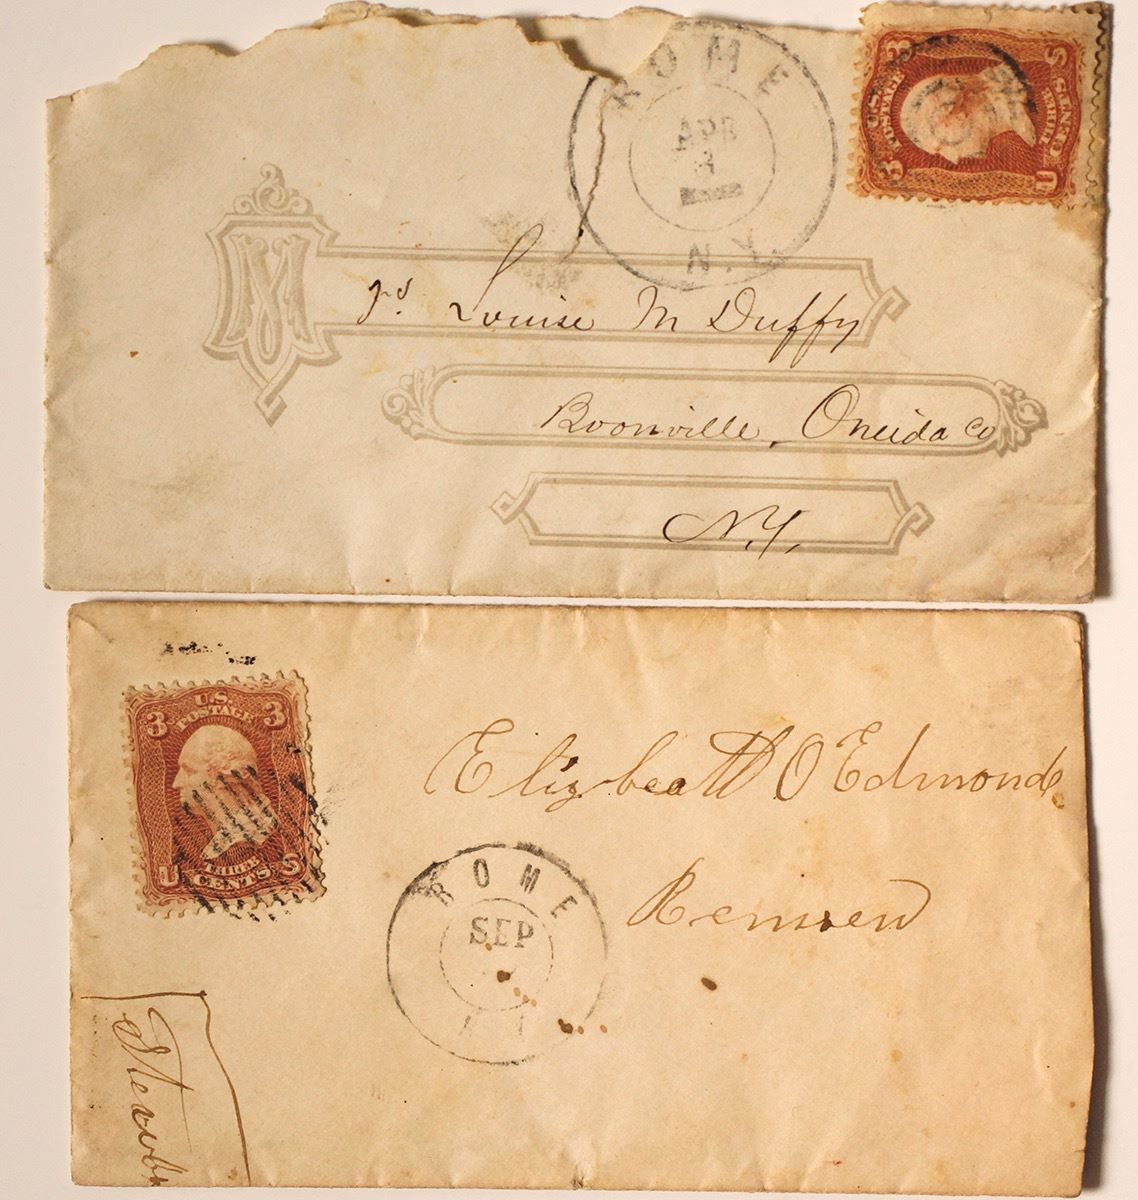 ROME
APR
N.Y.
3 3
U.S. POSTAGE
THREE CENTS
U S
M
Louise M Duffy
Boonville, Oneida Co
N.Y.
3 3
U.S.
POSTAGE
THREE
U CENTS S
Elizbeatth O Edmonds
Remsen
ROME
SEP